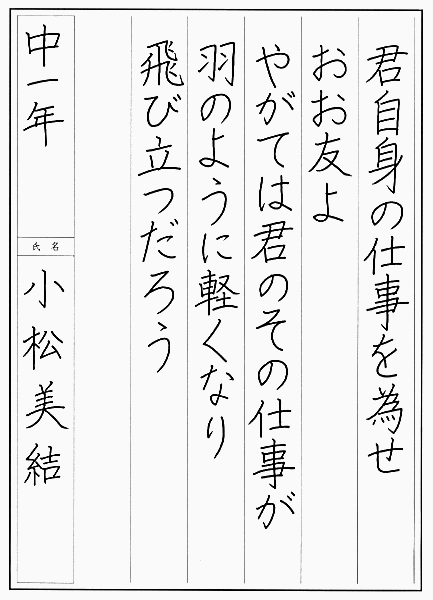 君自身の仕事を為せ
おお友よ
やがては君のその仕事が
羽のように軽くなり
飛び立つだろう
中一年
氏名
小松美結